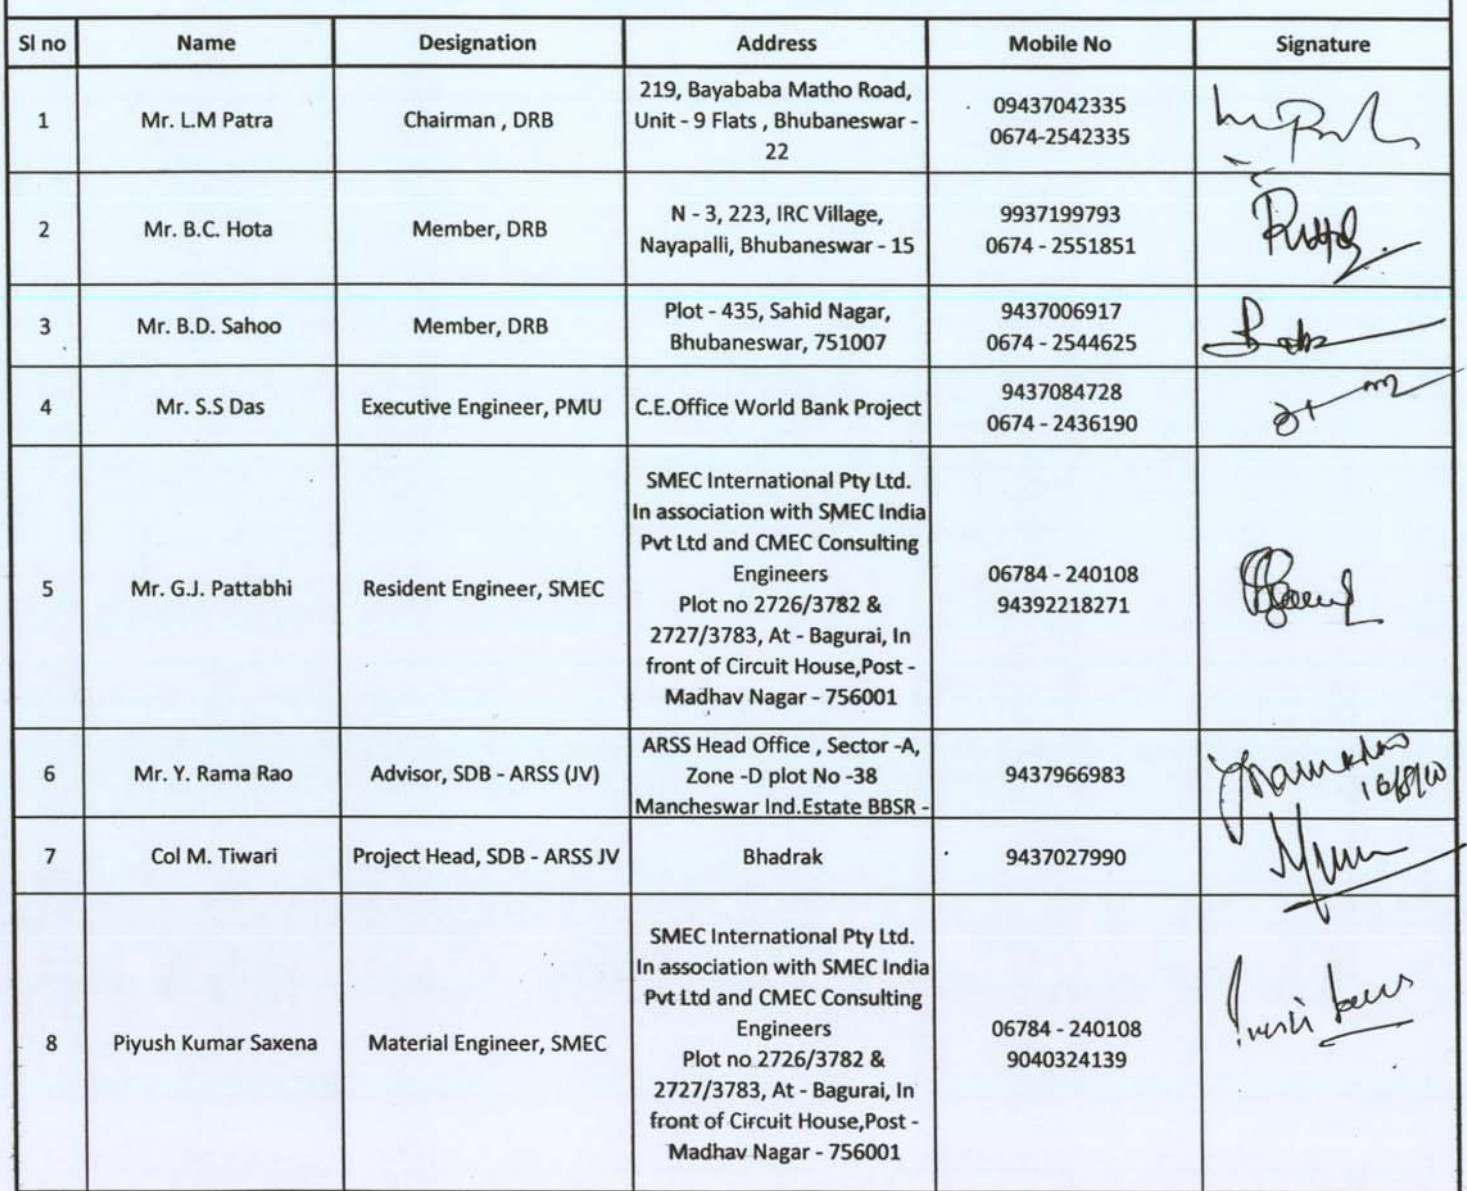 Sl no Name Designation Address Mobile No Signature
1 Mr. L.M Patra Chairman , DRB
219, Bayababa Matho Road,
Unit - 9 Flats , Bhubaneswar -
22
09437042335
0674-2542335
2 Mr. B.C. Hota Member, DRB
N - 3, 223, IRC Village,
Nayapalli, Bhubaneswar - 15
9937199793
0674 - 2551851
3 Mr. B.D. Sahoo Member, DRB
Plot - 435, Sahid Nagar,
Bhubaneswar, 751007
9437006917
0674 - 2544625
4 Mr. S.S Das Executive Engineer, PMU
C.E.Office World Bank Project
9437084728
0674 - 2436190
5 Mr. G.J. Pattabhi Resident Engineer, SMEC
SMEC International Pty Ltd.
In association with SMEC India
Pvt Ltd and CMEC Consulting
Engineers
Plot no 2726/3782 &
2727/3783, At - Bagurai, In
front of Circuit House,Post -
Madhav Nagar - 756001
06784 - 240108
94392218271
6 Mr. Y. Rama Rao Advisor, SDB - ARSS (JV)
ARSS Head Office , Sector -A,
Zone -D plot No -38
Mancheswar Ind.Estate BBSR -
9437966983
7 Col M. Tiwari Project Head, SDB - ARSS JV
Bhadrak
9437027990
8 Piyush Kumar Saxena Material Engineer, SMEC
SMEC International Pty Ltd.
In association with SMEC India
Pvt Ltd and CMEC Consulting
Engineers
Plot no 2726/3782 &
2727/3783, At - Bagurai, In
front of Circuit House,Post -
Madhav Nagar - 756001
06784 - 240108
9040324139